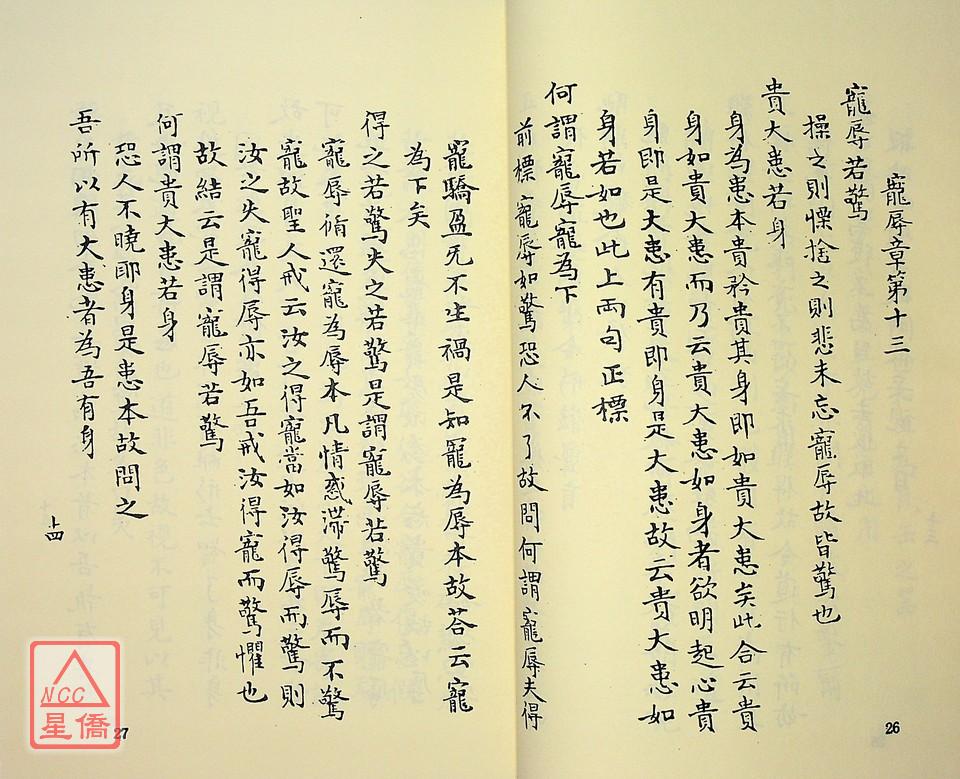 寵辱章第十三
寵辱若驚
操之則慄捨之則悲未忘寵辱故皆驚也
貴大患若身
身為患本貴矜貴其身即如貴大患矣此合云貴
身如貴大患而乃云貴大患如身者欲明起心貴
身即是大患有貴即身是大患故云貴大患如
身若如也此上兩句正標
何謂寵辱寵為下
前標寵辱如驚恐人不了故問何謂寵辱夫得
26
寵驕盈无不生禍是知寵為辱本故荅云寵
為下矣
得之若驚失之若驚是謂寵辱若驚
寵辱循還寵為辱本凡情惑滯驚辱而不驚
寵故聖人戒云汝之得寵當如汝得辱而驚則
汝之失寵得辱亦如吾戒汝得寵而驚懼也
故結云是謂寵辱若驚
何謂貴大患若身
恐人不曉即身是患本故問之
吾所以有大患者為吾有身
上四
27
NCC
星僑